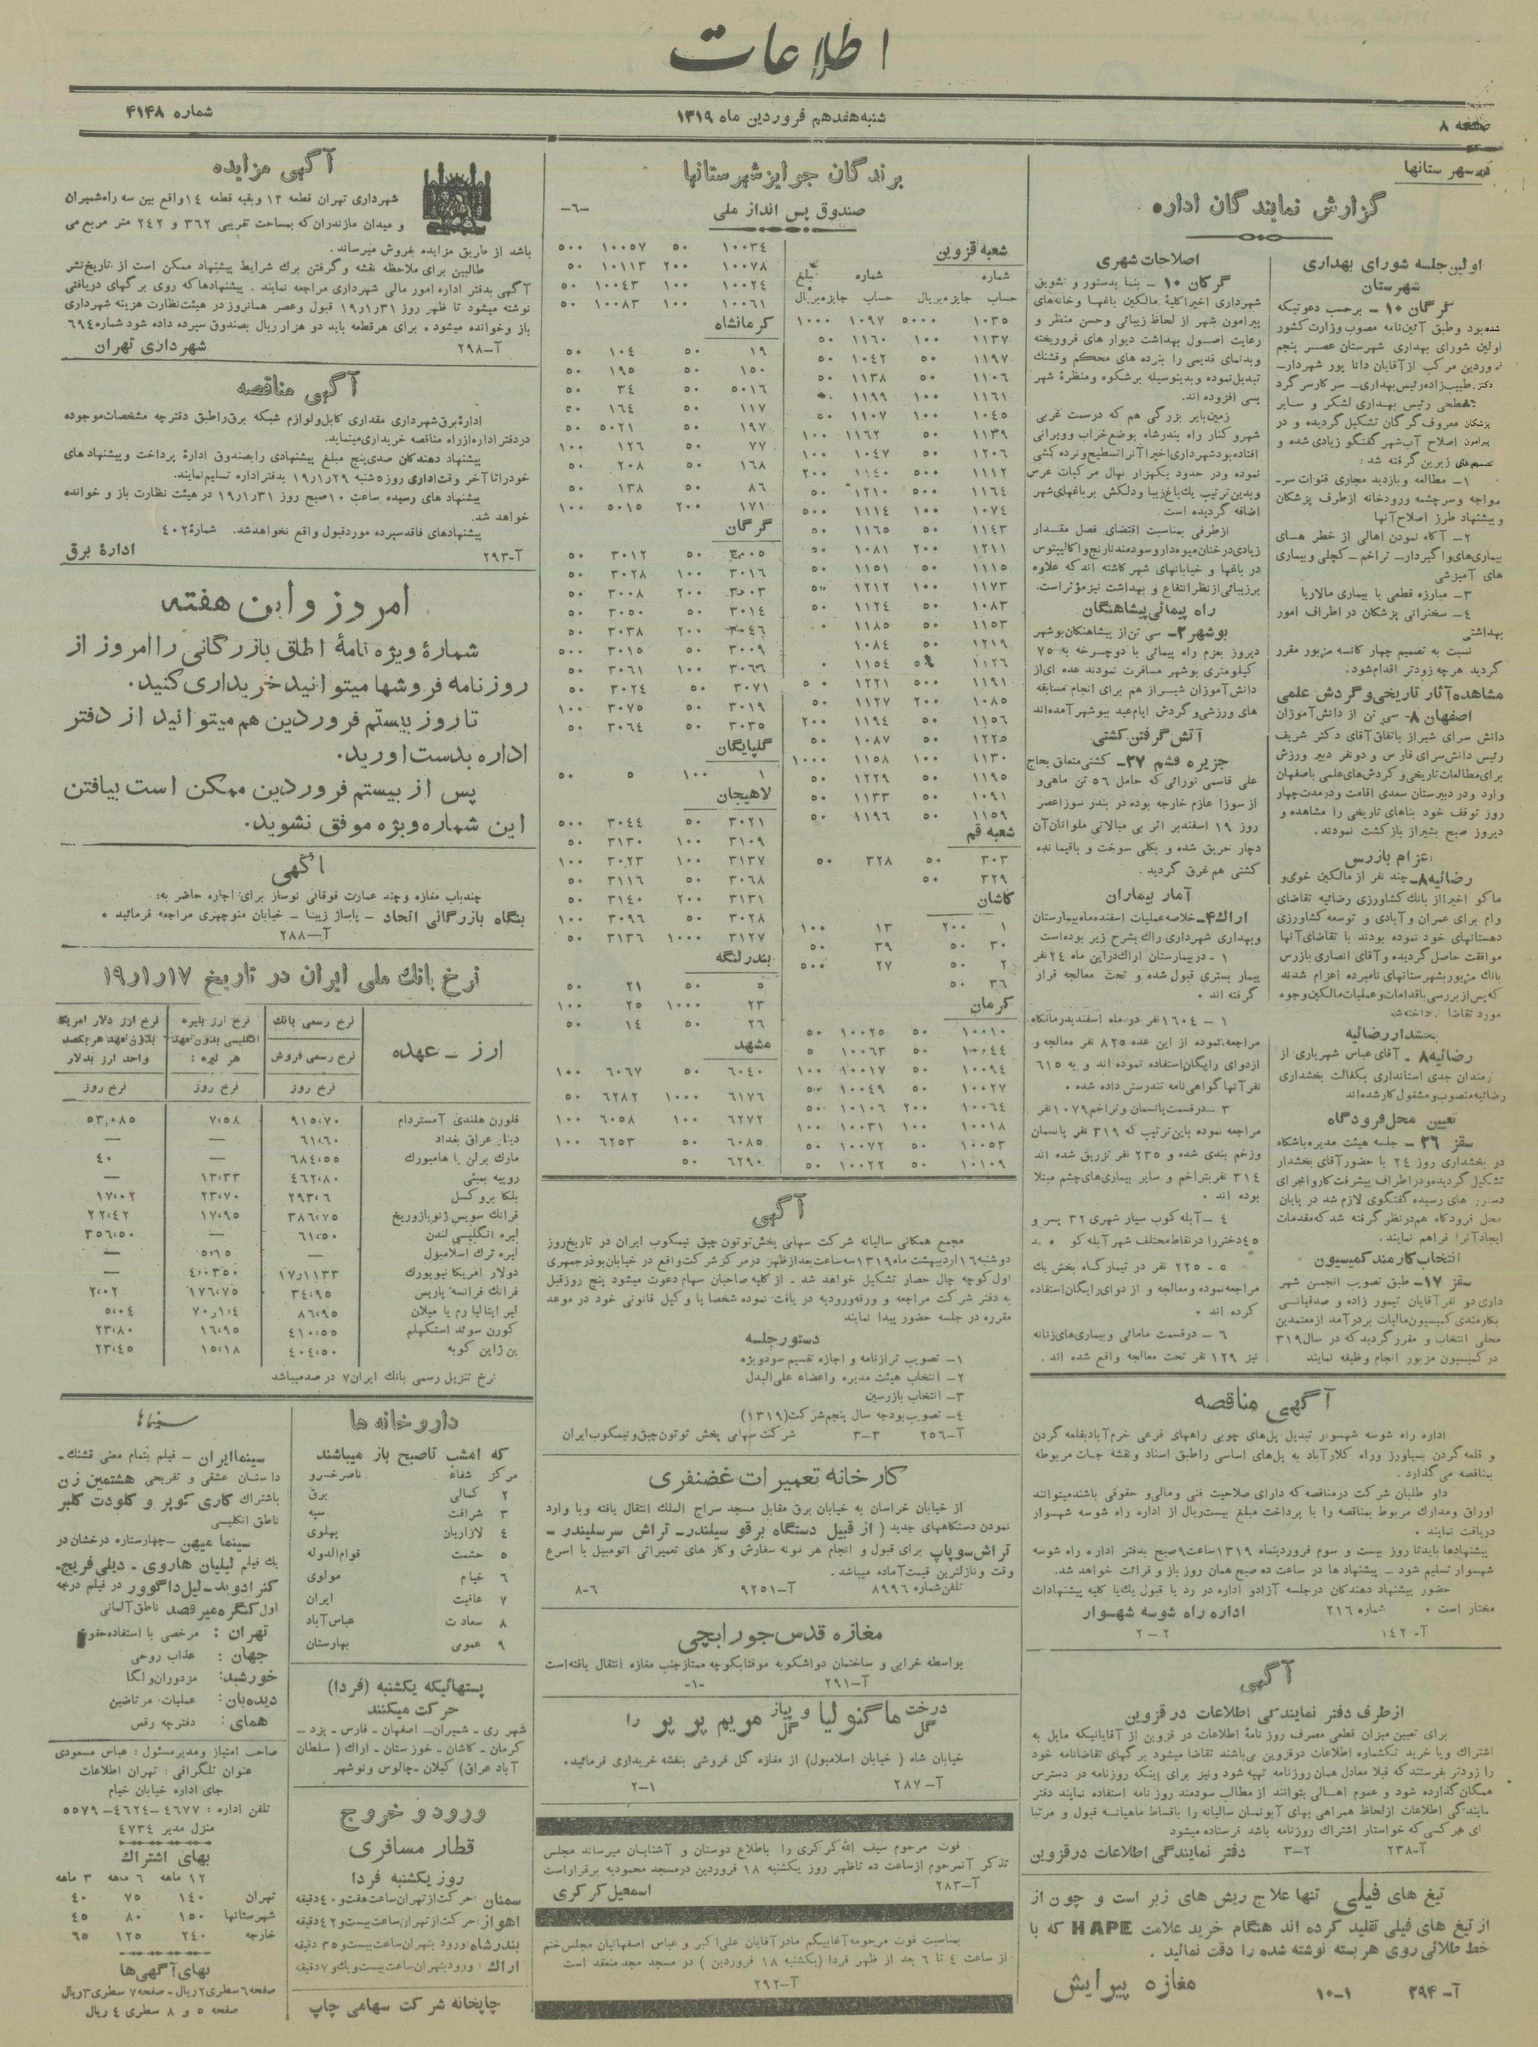 اطلاعات
صفحه ۸
شنبه هفدهم فروردین ماه ۱۳۱۹
شماره ۴۱۴۸
گزارش نمایندگان اداره
اولین جلسه شورای بهداری
شهرستان
گرگان ۱۰ – برحسب دعوتیکه
شده بود وطبق آئین‌نامه مصوب وزارت کشور
اولین شورای بهداری شهرستان عصر پنجم
فروردین مرکب از آقایان دانا پور شهردار–
دکتر طبیب‌زاده رئیس بهداری– سرکار سرگرد
سطحی رئیس بهداری لشکر و سایر
پزشکان معروف گرگان تشکیل گردیده و در
پیرامون اصلاح آب شهر گفتگو زیادی شده و
تصمیم‌های زیرین گرفته شد :
۱– مطالعه وبازدید مجاری قنوات سر–
مواجه وسرچشمه ورودخانه ازطرف پزشکان
وپیشنهاد طرز اصلاح آنها
۲– آگاه نمودن اهالی از خطر های
بیماری‌های واگیردار– تراخم – کچلی وبیماری
های آمیزشی
۳– مبارزه قطعی با بیماری مالاریا
۴– سخنرانی پزشکان در اطراف امور
بهداشتی
نسبت به تصمیم چهار گانه مزبور مقرر
گردید هرچه زودتر اقدام شود.
مشاهده آثار تاریخی و گردش علمی
اصفهان ۸– سی تن از دانش‌آموزان
دانش سرای شیراز باتفاق آقای دکتر شریف
رئیس دانش‌سرای فارس و دونفر دبیر ورزش
برای مطالعات تاریخی و گردش‌های علمی باصفهان
وارد و در دبیرستان سعدی اقامت ودرمدت چهار
روز توقف خود بناهای تاریخی را مشاهده و
دیروز صبح بشیراز بازگشت نمودند.
اعزام بازرس
رضائیه ۸– چند نفر از مالکین خوی و
ماکو اخیراً از بانک کشاورزی رضائیه تقاضای
وام برای عمران و آبادی و توسعه کشاورزی
دهستانهای خود نموده بودند با تقاضای آنها
موافقت حاصل گردیده و آقای انصاری بازرس
بانک مزبور بشهرستانهای نامبرده اعزام شدند
که پس از بررسی باقدامات و عملیات مالکین وجوه
مورد تقاضا پرداخته شود
بخشدار رضائیه
رضائیه ۸ – آقای عباس شهریاری از
کارمندان جدی استانداری بکفالت بخشداری
رضائیه منصوب و مشغول کار شده‌اند
تعیین محل فرودگاه
سقز ۲۶ – جلسه هیئت مدیره باشگاه
در بخشداری روز ۲۴ با حضور آقای بخشدار
تشکیل گردیده و در اطراف پیشرفت کار و اجرای
دستور های رسیده گفتگوی لازم شد در پایان
محل فرودگاه هم در نظر گرفته شد که مقدمات
ایجاد آنرا فراهم نمایند.
انتخاب کارمند کمیسیون
سقز ۱۷– طبق تصویب انجمن شهر
داری دو نفر آقایان تیمور زاده و صدقیانی
بکارمندی کمیسیون مالیات بر درآمد از معتمدین
محلی انتخاب و مقرر گردید که در سال ۳۱۹
در کمیسیون مزبور انجام وظیفه نمایند
اصلاحات شهری
گرگان ۱۰ – بنا بدستور و تشویق
شهرداری اخیراً کلیهٔ مالکین باغها و خانه‌های
پیرامون شهر از لحاظ زیبائی وحسن منظر و
رعایت اصول بهداشت دیوار های فروریخته
وبدنمای قدیمی را بنرده های محکم وقشنگ
تبدیل نموده و بدینوسیله برشکوه و منظرهٔ شهر
بسی افزوده اند.
زمین بایر بزرگی هم که درسمت غربی
شهر و کنار راه بندرشاه بوضع خراب و ویرانی
افتاده بود شهرداری اخیراً آنرا تسطیح و نرده کشی
نموده و در حدود یکهزار نهال مرکبات غرس
وبدین ترتیب یک باغ زیبا و دلکش بر باغهای شهر
اضافه گردیده است.
ازطرفی بمناسبت اقتضای فصل مقدار
زیادی درختان میوه دار و سودمند نارنج و اکالیپتوس
در باغها و خیابانهای شهر کاشته اند که علاوه
برزیبائی از نظر انتفاع و بهداشت نیز مؤثر است.
راه پیمائی پیشاهنگان
بوشهر ۲– سی تن از پیشاهنگان بوشهر
دیروز بعزم راه پیمائی با دوچرخه به ۷۵
کیلومتری بوشهر مسافرت نمودند عده ای از
دانش آموزان شیراز هم برای انجام مسابقه
های ورزشی و گردش ایام عید ببوشهر آمده‌اند
آتش گرفتن کشتی
جزیره قشم ۲۷– کشتی متعلق بحاج
علی قاسمی نورائی که حامل ۵۶ تن ماهی و
از سوزا عازم خارجه بوده در بندر سوزا عصر
روز ۱۹ اسفند بر اثر بی مبالاتی ملوانان آن
دچار حریق شده و بکلی سوخت و باقیمانده
کشتی هم غرق گردید.
آمار بیماران
اراک ۴– خلاصه عملیات اسفند ماه بیمارستان
وبهداری شهرداری اراک بشرح زیر بوده است
۱ – در بیمارستان اراک در این ماه ۲۴ نفر
بیمار بستری قبول شده و تحت معالجه قرار
گرفته اند .
۱ – ۱۶۰۴ نفر در ماه اسفند بدرمانگاه
مراجعه نموده از این عده ۸۲۵ نفر معالجه و
ازدوای رایگان استفاده نموده اند و به ۶۱۵
نفر آنها گواهی نامه تندرستی داده شده .
۳ – در قسمت پانسمان و تراخم ۱۰۷۹ نفر
مراجعه نموده باین ترتیب که ۳۱۹ نفر پانسمان
وزخم بندی شده و ۲۳۵ نفر تزریق شده اند
۳۱۴ نفر بتراخم و سایر بیماری‌های چشم مبتلا
بوده اند .
۴ – آبله کوب سیار شهری ۳۲ پسر و
۴۵ دختر را در نقاط مختلف شهر آبله کوبیده
۵ – ۲۲۵ نفر در تیمارگاه بخش یک
مراجعه نموده و معالجه و از دوای رایگان استفاده
کرده اند .
۶ – در قسمت مامائی و بیماری‌های زنانه
نیز ۱۲۹ نفر تحت معالجه واقع شده اند .
آگهی مناقصه
اداره راه شوسه شهسوار تبدیل پل‌های چوبی راههای فرعی خرم‌آباد بقلعه گردن
و قلعه گردن بسیاورز وراه کلارآباد به پل‌های اساسی را طبق اسناد ونقشه جات مربوطه
بمناقصه می گذارد .
داو طلبان شرکت در مناقصه که دارای صلاحیت فنی ومالی و حقوقی باشند میتوانند
اوراق ومدارک مربوط بمناقصه را با پرداخت مبلغ بیست ریال از اداره راه شوسه شهسوار
دریافت نمایند .
پیشنهادها باید تا روز بیست و سوم فروردینماه ۱۳۱۹ ساعت ۹ صبح بدفتر اداره راه شوسه
شهسوار تسلیم شود – پیشنهاد ها در ساعت ده صبح همان روز باز و قرائت خواهد شد.
حضور پیشنهاد دهندگان در جلسه آزاد و اداره در رد یا قبول یک یا کلیه پیشنهادات
مختار است . شماره ۲۱۶ اداره راه شوسه شهسوار
آ–۱۴۲۰ ۲–۲
آگهی
از طرف دفتر نمایندگی اطلاعات در قزوین
برای تعیین میزان قطعی مصرف روز نامهٔ اطلاعات در قزوین از آقایانیکه مایل به
اشتراک ویا خرید تکشماره اطلاعات در قزوین می‌باشند تقاضا میشود برگهای تقاضانامه خود
را زودتر بفرستند که قبلا معادل همان روزنامه تهیه شود و نیز برای اینکه روزنامه در دسترس
همگان گذارده شود و عموم اهالی بتوانند از مطالب سودمند روز نامه استفاده نمایند دفتر
نمایندگی اطلاعات از لحاظ همراهی بهای آبونمان سالیانه را باقساط ماهیانه قبول و مرتبا
برای هر کسی که خواستار اشتراک روزنامه باشد فرستاده میشود
آ–۲۳۸ ۲–۳ دفتر نمایندگی اطلاعات در قزوین
تیغ های فیلی تنها علاج ریش های زبر است و چون از
از تیغ های فیلی تقلید کرده اند هنگام خرید علامت HAPE که با
خط طلائی روی هر بسته نوشته شده را دقت نمائید .
آ– ۲۹۴ ۱–۱۰ مغازه پیرایش
برندگان جوایز شهرستانها
صندوق پس انداز ملی
–۶–
شعبه قزوین
شماره حساب جایزه بریال شماره حساب مبلغ جایزه بریال
۱۰۳۵ ۵۰۰۰ ۱۰۹۷ ۱۰۰۰
۱۱۳۷ ۱۰۰ ۱۱۶۰ ۵۰
۱۱۹۷ ۵۰ ۱۰۴۲ ۵۰
۱۱۰۶ ۵۰ ۱۱۳۸ ۵۰
۱۱۶۱ ۱۰۰ ۱۱۹۹
۱۰۴۵ ۱۰۰ ۱۱۰۷ ۵۰
۱۱۳۹ ۵۰ ۱۱۶۲ ۱۰۰
۱۲۰۶ ۵۰ ۱۰۴۷ ۱۰۰
۱۱۱۲ ۵۰۰ ۱۱۴۰ ۲۰۰
۱۱۶۴ ۵۰ ۱۲۱۰ ۵۰۰
۱۰۷۴ ۱۰۰ ۱۱۱۴ ۵۰۰
۱۱۴۳ ۵۰ ۱۱۶۵ ۵۰
۱۲۱۱ ۲۰۰ ۱۰۸۱ ۵۰
۱۱۱۵ ۵۰ ۱۱۵۱ ۵۰
۱۱۷۳ ۱۰۰ ۱۲۱۲ ۵۰
۱۰۸۳ ۵۰ ۱۱۲۴ ۵۰
۱۱۵۳ ۵۰ ۱۱۸۵
۱۲۱۹ ۵۰ ۱۰۸۴
۱۱۲۶ ۵۰ ۱۱۵۴
۱۱۹۱ ۵۰۰ ۱۲۲۱ ۵۰
۱۰۸۵ ۲۰۰ ۱۱۲۷ ۵۰
۱۱۵۶ ۵۰ ۱۱۹۴ ۲۰۰
۱۲۲۵ ۵۰ ۱۰۸۷ ۵۰
۱۱۳۰ ۱۰۰ ۱۱۵۸ ۱۰۰۰
۱۱۹۵ ۵۰ ۱۲۲۹ ۵۰
۱۰۹۱ ۵۰ ۱۱۳۳ ۵۰
۱۱۵۹ ۵۰ ۱۱۹۶ ۵۰
شعبه قم
۳۰۳ ۵۰ ۳۲۸ ۵۰
۳۲۹ ۵۰
کاشان
۱ ۲۰۰ ۱۳ ۱۰۰
۳۰ ۵۰ ۳۹ ۵۰
۲ ۵۰ ۲۷ ۵۰۰
۳۶ ۵۰
کرمان
۱۰۰۱۰ ۵۰ ۱۰۰۲۵ ۵۰
۱۰۰۴۴ ۵۰ ۱۰۰۶۳ ۵
۱۰۰۹۴ ۵۰ ۱۰۰۱۷ ۱۰۰
۱۰۰۲۷ ۵۰ ۱۰۰۴۹ ۵۰
۱۰۰۶۴ ۲۰۰ ۱۰۱۰۶ ۵۰
۱۰۰۱۸ ۱۰۰ ۱۰۰۳۱ ۱۰۰
۱۰۰۵۳ ۵۰ ۱۰۰۷۲ ۵۰
۱۰۱۰۹ ۵۰ ۱۰۰۲۲ ۵۰
۱۰۰۳۴ ۵۰ ۱۰۰۵۷ ۵۰۰
۱۰۰۷۸ ۲۰۰ ۱۰۱۱۳ ۵۰
۱۰۰۲۴ ۱۰۰ ۱۰۰۴۳ ۵۰
۱۰۰۶۱ ۱۰۰ ۱۰۰۸۳ ۵۰
کرمانشاه
۱۹ ۵۰ ۱۰۴ ۵۰
۱۵۰ ۵۰ ۱۹۵ ۵۰
۵۰۱۶ ۵۰ ۳۴ ۵۰
۱۱۷ ۵۰ ۱۶۴ ۵۰
۱۹۷ ۵۰ ۵۰۲۱ ۵۰
۷۷ ۵۰ ۱۲۶ ۱۰۰
۱۶۸ ۵۰ ۲۰۸ ۵۰
۸۶ ۵۰ ۱۳۸ ۵۰
۱۷۱ ۲۰۰ ۵۰۱۵ ۱۰۰
گرگان
۳۰۰۵ ۵۰ ۳۰۱۲ ۵۰
۳۰۱۶ ۱۰۰ ۳۰۲۸ ۵۰
۳۰۰۳ ۲۰۰ ۳۰۰۸ ۵۰
۳۰۱۴ ۵۰ ۳۰۵۰ ۵۰
۳۰۴۶ ۲۰۰ ۳۰۳۸ ۵۰
۳۰۰۹ ۵۰ ۳۰۱۵ ۵۰۰
۳۰۶۶ ۱۰۰ ۳۰۶۱ ۵۰
۳۰۷۱ ۵۰ ۳۰۲۴ ۵۰
۳۰۱۹ ۵۰ ۳۰۷۵ ۱۰۰
۳۰۳۵ ۵۰ ۳۰۶۴ ۵۰
گلپایگان
۱ ۱۰۰ ۵ ۵۰
لاهیجان
۳۰۲۱ ۵۰ ۳۰۴۴ ۵۰۰
۳۱۰۹ ۵۰ ۳۱۳۰ ۵۰
۳۱۳۷ ۱۰۰ ۳۰۲۳ ۱۰۰
۳۰۶۸ ۵۰ ۳۱۱۶ ۵۰
۳۱۳۱ ۲۰۰ ۳۱۴۰ ۵۰
۳۰۲۸ ۵۰ ۳۰۹۶ ۱۰۰
۳۱۲۷ ۱۰۰۰ ۳۱۳۶ ۵۰
بندر لنگه
۵ ۵۰ ۲۱ ۵۰
۲۳ ۱۰۰۰ ۲۵ ۱۰۰
۲۶ ۵۰ ۱۴ ۵۰
مشهد
۶۰۴۰ ۵۰ ۶۰۶۷ ۱۰۰
۶۱۷۶ ۱۰۰۰ ۶۲۸۲ ۵۰
۶۲۷۲ ۱۰۰ ۶۰۵۸ ۱۰۰
۶۰۸۵ ۵۰ ۶۲۵۳ ۱۰۰
۶۲۹۰ ۵۰
آگهی
مجمع همگانی سالیانه شرکت سهامی پخش توتون چپق نیمکوب ایران در تاریخ روز
دوشنبه ۱۶ اردیبهشت ماه ۱۳۱۹ سه ساعت بعد از ظهر در مرکز شرکت واقع در خیابان بوذرجمهری
اول کوچه چال حصار تشکیل خواهد شد – از کلیه صاحبان سهام دعوت میشود پنج روز قبل
به دفتر شرکت مراجعه و ورقه ورودیه دریافت نموده شخصا یا وکیل قانونی خود در موعد
مقرره در جلسه حضور پیدا نمایند
دستور جلسه
۱– تصویب ترازنامه و اجازه تقسیم سود ویژه
۲– انتخاب هیئت مدیره واعضاء علی البدل
۳– انتخاب بازرسین
۴– تصویب بودجه سال پنجم شرکت (۱۳۱۹)
آ–۲۵۶ ۳–۳ شرکت سهامی پخش توتون چپق و نیمکوب ایران
کارخانه تعمیرات غضنفری
از خیابان خراسان به خیابان برق مقابل مسجد سراج الملک انتقال یافته وبا وارد
نمودن دستگاههای جدید ( از قبیل دستگاه برقو سیلندر– تراش سرسیلندر–
تراش سوپاپ برای قبول و انجام هر گونه سفارش وکار های تعمیراتی اتومبیل با اسرع
وقت و نازلترین قیمت آماده میباشد.
تلفن شماره ۸۹۹۶ آ–۹۲۵۱ ۶–۸
مغازه قدس جورابچی
بواسطه خرابی و ساختمان دواشکوبه موقتاً بکوچه ممتاز جنب مغازه انتقال یافته است
آ–۲۹۱ –۱–
درخت گل ماگنولیا و پیاز گل مریم پر پر را
خیابان شاه ( خیابان اسلامبول) از مغازه گل فروشی بنفشه خریداری فرمائید.
آ–۲۸۷ ۱–۲
فوت مرحوم سیف الله کرکری را باطلاع دوستان و آشنایان میرساند مجلس
تذکر آنمرحوم از ساعت ده تا ظهر روز یکشنبه ۱۸ فروردین در مسجد محمودیه برقرار است
آ–۲۸۳ اسمعیل کرکری
بمناسبت فوت مرحومه آغابیگم مادر آقایان علی اکبر و عباس اصفهانیان مجلس ختم
از ساعت ۴ تا ۶ بعد از ظهر فردا (یکشنبه ۱۸ فروردین ) در مسجد مجد منعقد است
آ–۲۹۲
آگهی مزایده
شهرداری تهران قطعه ۱۳ و بقیه قطعه ۱۴ واقع بین سه راه شمیران
و میدان مازندران که بمساحت تقریبی ۳۶۲ و ۲۴۲ متر مربع می
باشد از طریق مزایده بفروش میرساند.
طالبین برای ملاحظه نقشه و گرفتن برگ شرایط پیشنهاد ممکن است از تاریخ نشر
آگهی بدفتر اداره امور مالی شهرداری مراجعه نمایند . پیشنهادها که روی برگهای دریافتی
نوشته میشود تا ظهر روز ۱۹/۱/۳۱ قبول وعصر همانروز در هیئت نظارت هزینه شهرداری
باز وخوانده میشود . برای هر قطعه باید دو هزار ریال بصندوق سپرده داده شود شماره ۶۹۴
آ–۲۹۸ شهرداری تهران
آگهی مناقصه
ادارهٔ برق شهرداری مقداری کابل و لوازم شبکه برق را طبق دفترچه مشخصات موجوده
در دفتر اداره از راه مناقصه خریداری مینماید.
پیشنهاد دهندگان صدی پنج مبلغ پیشنهادی را بصندوق ادارهٔ پرداخت و پیشنهاد های
خود را تا آخر وقت اداری روز ۵ شنبه ۱۹/۱/۲۹ بدفتر اداره تسلیم نمایند.
پیشنهاد های رسیده ساعت ۱۰ صبح روز ۱۹/۱/۳۱ در هیئت نظارت باز و خوانده
خواهد شد.
پیشنهادهای فاقد سپرده مورد قبول واقع نخواهد شد. شماره ۴۰۲
آ–۲۹۳ ادارهٔ برق
امروز و این هفته
شمارهٔ ویژه نامهٔ اطاق بازرگانی را امروز از
روزنامه فروشها میتوانید خریداری کنید.
تا روز بیستم فروردین هم میتوانید از دفتر
اداره بدست اورید.
پس از بیستم فروردین ممکن است بیافتن
این شماره ویژه موفق نشوید.
آگهی
چندباب مغازه وچند عمارت فوقانی نوساز برای اجاره حاضر به:
بنگاه بازرگانی اتحاد – پاساژ زیبا – خیابان منوچهری مراجعه فرمائید .
آ–۲۸۸
نرخ بانک ملی ایران در تاریخ ۱۹/۱/۱۷
ارز – عهده
نرخ رسمی بانک
نرخ رسمی فروش
نرخ روز
نرخ ارز بلیره
انگلیسی بدون تعهد
هر لیره :
نرخ روز
نرخ ارز دلار امریکا
بدون تعهد هر یکصد
واحد ارز بدلار
نرخ روز
فلورن هلندی آمستردام ۹۱۵،۷۰ ۷،۵۸ ۵۳،۰۸۵
دینار عراق بغداد ۶۱،۶۰ — —
مارک برلن یا هامبورک ۶۸۴،۵۵ — ۴۰
روپیه بمبئی ۴۶۲،۸۰ ۱۳،۳۳ —
بلگا بروکسل ۲۹۳،۶ ۲۳،۷۰ ۱۷،۰۲
فرانک سویس ژنو یا زوریخ ۳۸۶،۷۵ ۱۷،۹۵ ۲۲،۴۲
لیره انگلیسی لندن ۶۱،۵۰ — ۳۵۶،۵۰
لیره ترک اسلامبول — ۵،۶۵ —
دولار امریکا نیویورک ۱۷،۱۱۳۳ ۴،۰۳۵۰ —
فرانک فرانسه پاریس ۳۴،۹۵ ۱۷۶،۷۵ ۲،۰۲
لیر ایتالیا رم یا میلان ۸۶،۹۵ ۷۰،۱،۴ ۵،۰۴
کورن سوئد استکهلم ۴۱۰،۵۵ ۱۶،۹۵ ۲۳،۸۰
ین ژاپن کوبه ۴۰۴،۵۰ ۱۵،۱۸ ۲۳،۴۵
نرخ تنزیل رسمی بانک ایران ۷ در صد میباشد
داروخانه ها
که امشب تا صبح باز میباشند
مرکز شفاء ناصرخسرو
۲ کمالی برق
۳ شرافت سپه
۴ لازاریان پهلوی
۵ حشمت قوام الدوله
۶ خیام مولوی
۷ عافیت ایران
۸ سعادت عباس آباد
۹ عمومی بهارستان
پستهائیکه یکشنبه (فردا)
حرکت میکنند
شهر ری – شمیران– اصفهان – فارس – یزد –
کرمان – کاشان – خوزستان – اراک ( سلطان
آباد عراق) گیلان – چالوس و نوشهر
ورود و خروج
قطار مسافری
روز یکشنبه فردا
سمنان: حرکت از تهران ساعت هفت و ۴۰ دقیقه
اهواز: حرکت از تهران ساعت بیست و ۴۲ دقیقه
بندرشاه: ورود بتهران ساعت بیست و ۳۵ دقیقه
اراک : ورود بتهران ساعت بیست و یک و ۷ دقیقه
چاپخانه شرکت سهامی چاپ
سینماها
سینما ایران – فیلم بتمام معنی قشنگ –
داستان عشقی و تفریحی هشتمین زن
باشتراک گاری کوپر و کلودت کلبر
ناطق انگلیسی
سینما میهن – چهار ستاره درخشان در
یک فیلم لیلیان هاروی – دیلی فریچ–
کنراد وید – لیل داگوور در فیلم درجه
اول کنگره میرقصد ناطق آلمانی
تهران : مرخصی با استفاده حقوق
جهان : عذاب روحی
خورشید: مزدوران ولگا
دیده‌بان: عملیات مرتاضین
همای: دفترچه رقص
صاحب امتیاز و مدیر مسئول : عباس مسعودی
عنوان تلگرافی : تهران اطلاعات
جای اداره خیابان خیام
تلفن اداره : ۴۶۷۷–۴۶۲۴–۵۵۷۹
منزل مدیر ۴۷۳۴
بهای اشتراک
۱۲ ماهه ۶ ماهه ۳ ماهه
تهران ۱۴۰ ۷۵ ۴۰
شهرستانها ۱۵۰ ۸۰ ۴۵
خارجه ۲۴۰ ۱۲۵ ۶۵
بهای آگهی‌ها
صفحه ۶ سطری ۲ ریال – صفحه ۷ سطری ۳ ریال
صفحه ۵ و ۸ سطری ۴ ریال